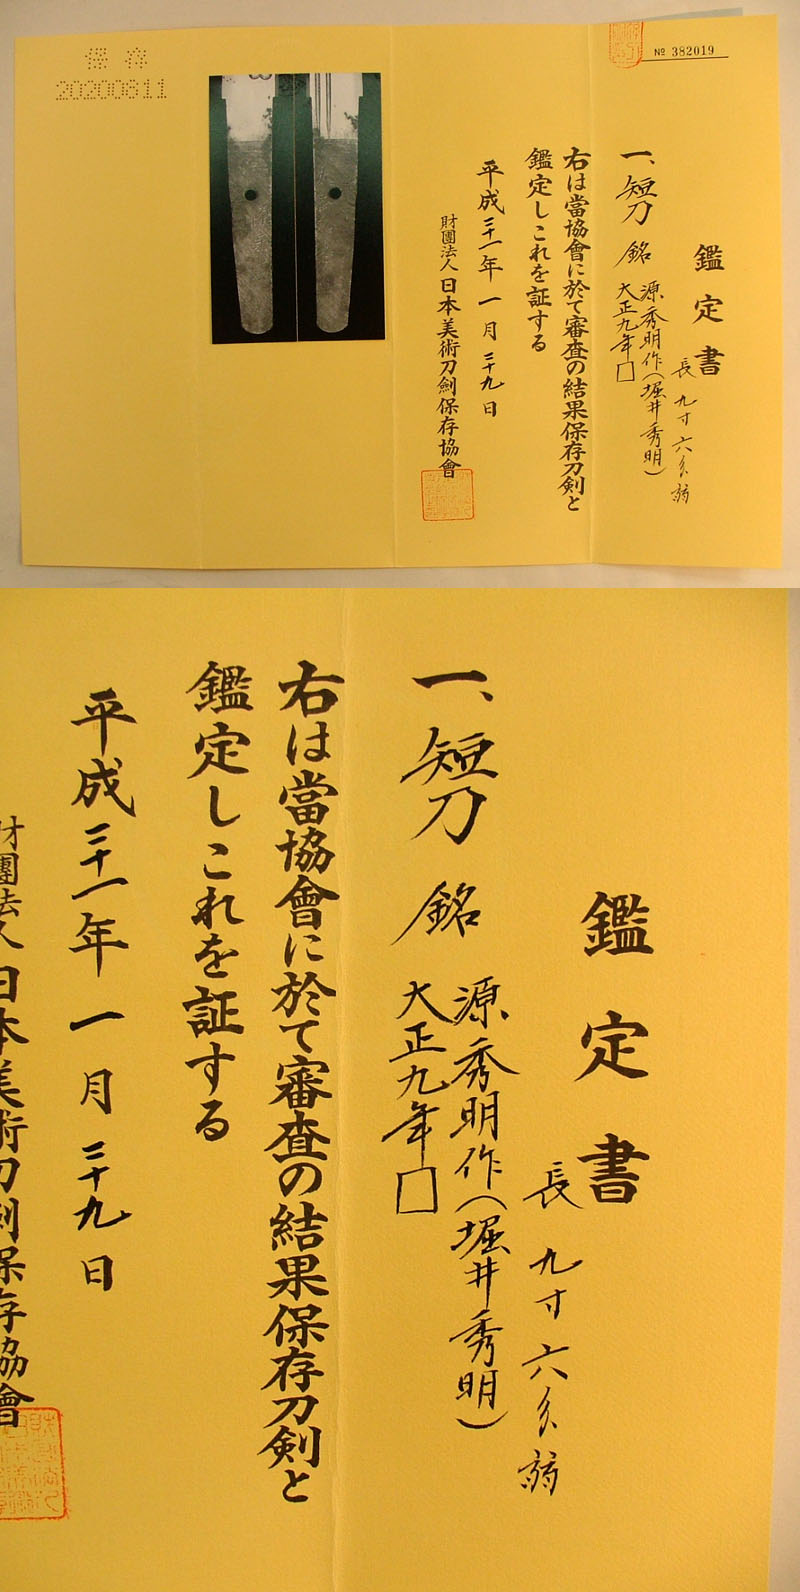 № 382019
鑑定書
長 九寸六分弱
一、短刀 銘 源秀明作(堀井秀明)
大正九年□
右は當協會に於て審査の結果保存刀剣と
鑑定しこれを証する
平成三十一年一月二十九日
財團法人日本美術刀劍保存協會
保存
20200811
鑑定書
長 九寸六分弱
一、短刀 銘 源秀明作(堀井秀明)
大正九年□
右は當協會に於て審査の結果保存刀剣と
鑑定しこれを証する
平成三十一年一月二十九日
財團法人日本美術刀劍保存協會